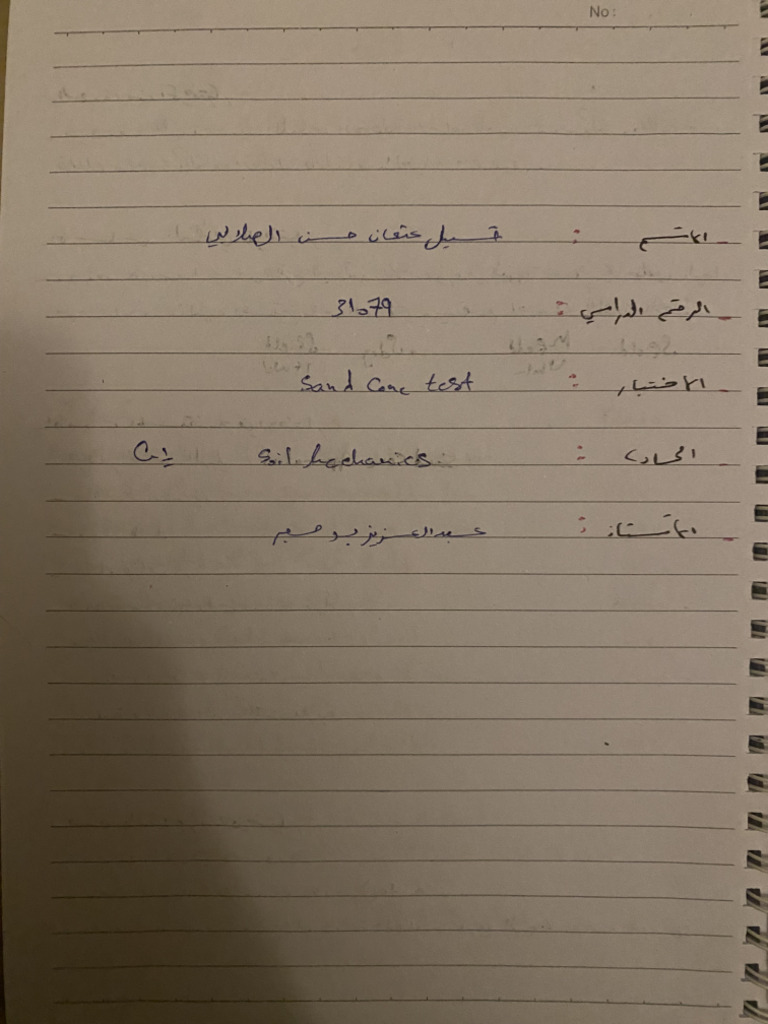 No:
- الاسم : عثمان حسن الصلابي
- الرقم الدراسي : 31079
- الاختبار : Sand Cone test
- المادة : Soil Mechanics
- الأستاذ : عبدالعزيز